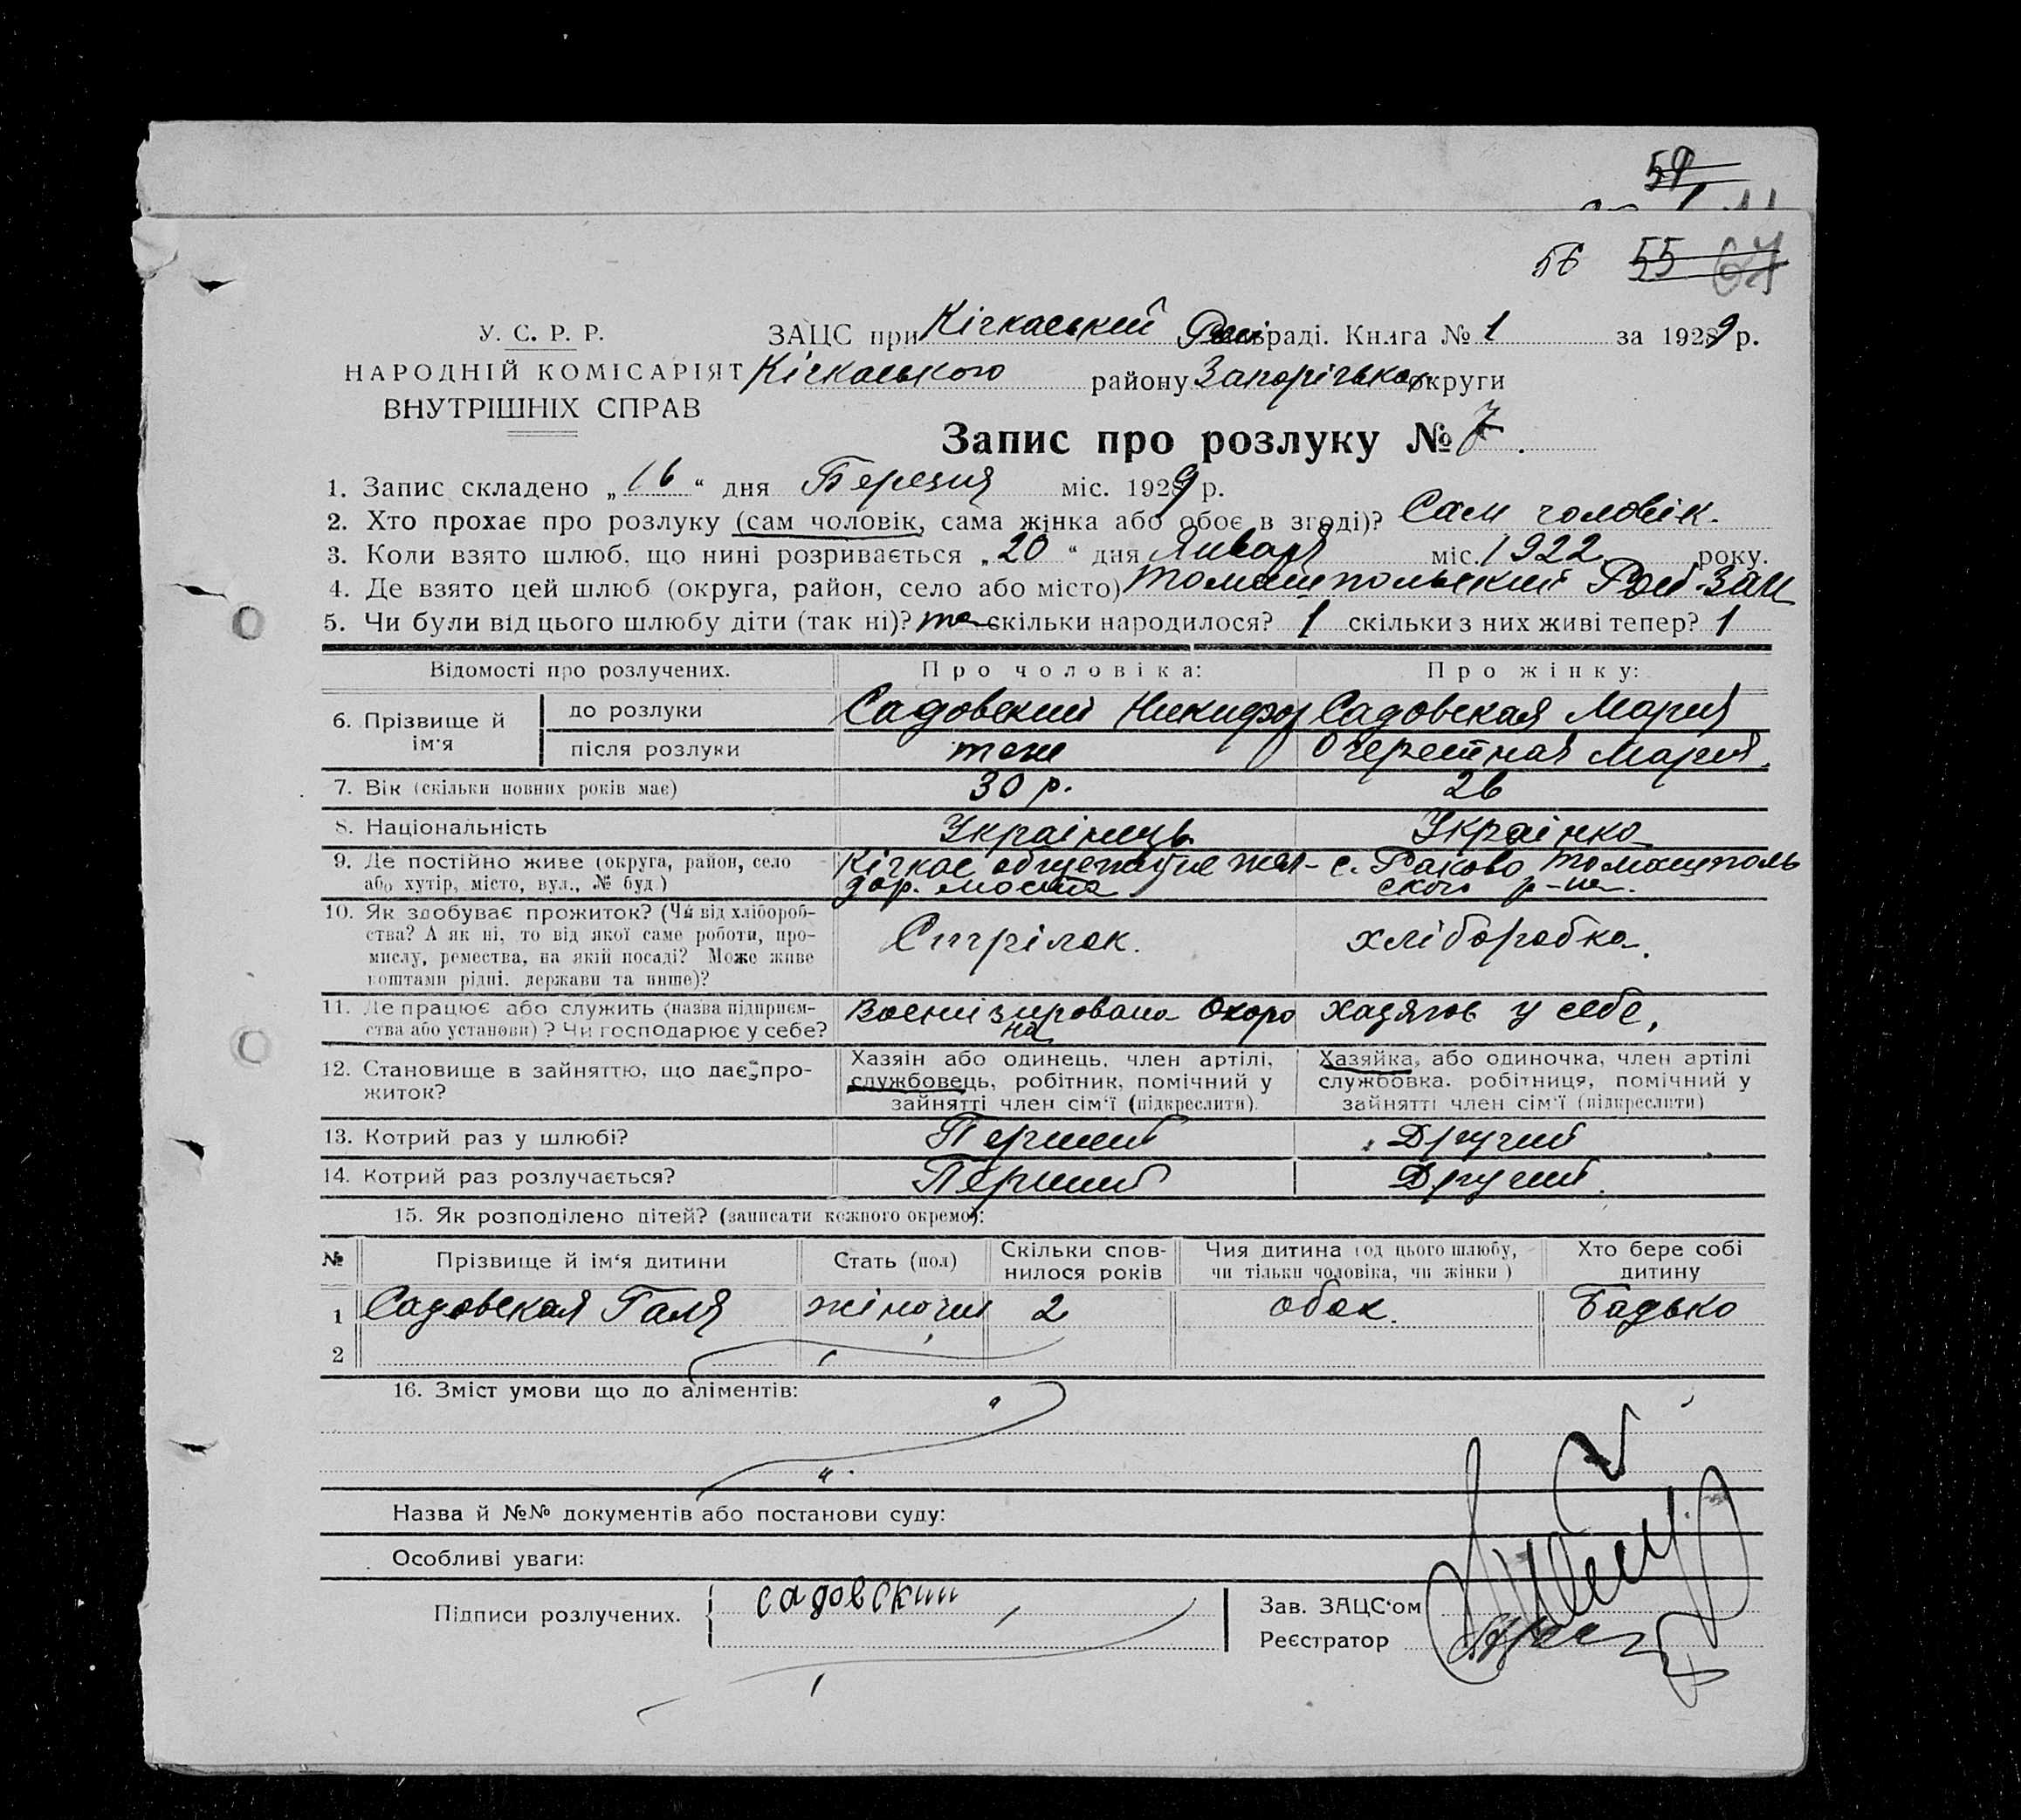 59
56 55 67
У. С. Р. Р. ЗАЦС при Кічкаський раді. Книга № 1 за 1929 р.
НАРОДНІЙ КОМІСАРІЯТ Кічкаського району Запорізької округи
ВНУТРІШНІХ СПРАВ
Запис про розлуку № 7.
1. Запис складено „16“ дня Березня міс. 1929 р.
2. Хто прохає про розлуку (сам чоловік, сама жінка або обоє в згоді)? Сам чоловік.
3. Коли взято шлюб, що нині розривається „20“ дня Января міс. 1922 року.
4. Де взято цей шлюб (округа, район, село або місто) Томашпольский Рай. ЗАЦ
5. Чи були від цього шлюбу діти (так ні)? та скільки народилося? 1 скільки з них живі тепер? 1
Відомості про розлучених. Про чоловіка: Про жінку:
6. Прізвище й ім'я до розлуки Садовский Никифор Садовская Мария
після розлуки теж Очеретная Мария.
7. Вік (скільки повних років має) 30 р. 26
8. Національність Українець Українка
9. Де постійно живе (округа, район, село Кічкас общежитие жел- с. Раково Томашполь
або хутір, місто, вул., № буд.) дор. моста ского р-на.
10. Як здобуває прожиток? (Чи від хлібороб-
ства? А як ні, то від якої саме роботи, про- Стрілок. хліборобка.
мислу, ремества, на якій посаді? Може живе
коштами рідні, держави та инше)?
11. Де працює або служить (назва підприєм- Воєнизирована Охоро Хазяює у себе,
ства або установи)? Чи господарює у себе? на
12. Становище в зайняттю, що дає про- Хазяін або одинець, член артілі, Хазяйка, або одиночка, член артілі
житок? службовець, робітник, помічний у службовка. робітниця, помічний у
зайнятті член сім'ї (підкреслити). зайнятті член сім'ї (підкреслити)
13. Котрий раз у шлюбі? Перший Другий
14. Котрий раз розлучається? Перший Другий.
15. Як розподілено дітей? (записати кожного окремо):
№ Прізвище й ім'я дитини Стать (пол) Скільки спов- Чия дитина (од цього шлюбу, Хто бере собі
нилося років чи тільки чоловіка, чи жінки) дитину
1 Садовская Галя жіночий 2 обох. Бадько
2
16. Зміст умови що до аліментів:
Назва й №№ документів або постанови суду:
Особливі уваги:
Підписи розлучених. садовский Зав. ЗАЦС'ом
Реєстратор